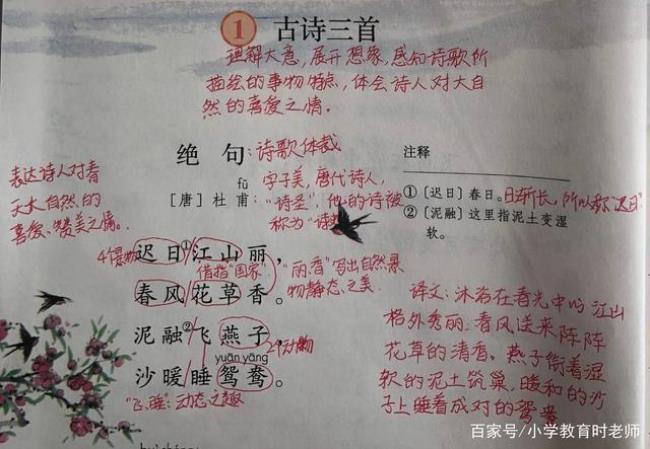 1 古诗三首
理解大意，展开想象，感知诗歌所
描绘的事物特点，体会诗人对大自
然的喜爱之情。
绝句：诗歌体裁
表达诗人对春
天大自然的
喜爱、赞美之情。
fǔ
［唐］杜甫：
字子美，唐代诗人，
“诗圣”，他的诗被
称为“诗
注释
①〔迟日〕春日。日渐长，所以称“迟日”
②〔泥融〕这里指泥土变湿
软。
4个景物
迟日①江山丽，
借指“国家”
春风花草香。
“丽、香”写出自然景
物静态之美
泥融②飞燕子，
2个动物
yuān yāng
沙暖睡鸳鸯。
“飞、睡”：动态之趣
译文：沐浴在春光中的江山
格外秀丽，春风送来阵阵
花草的清香。燕子衔着湿
软的泥土筑巢，暖和的沙
子上睡着成对的鸳鸯
百家号/小学教育时老师